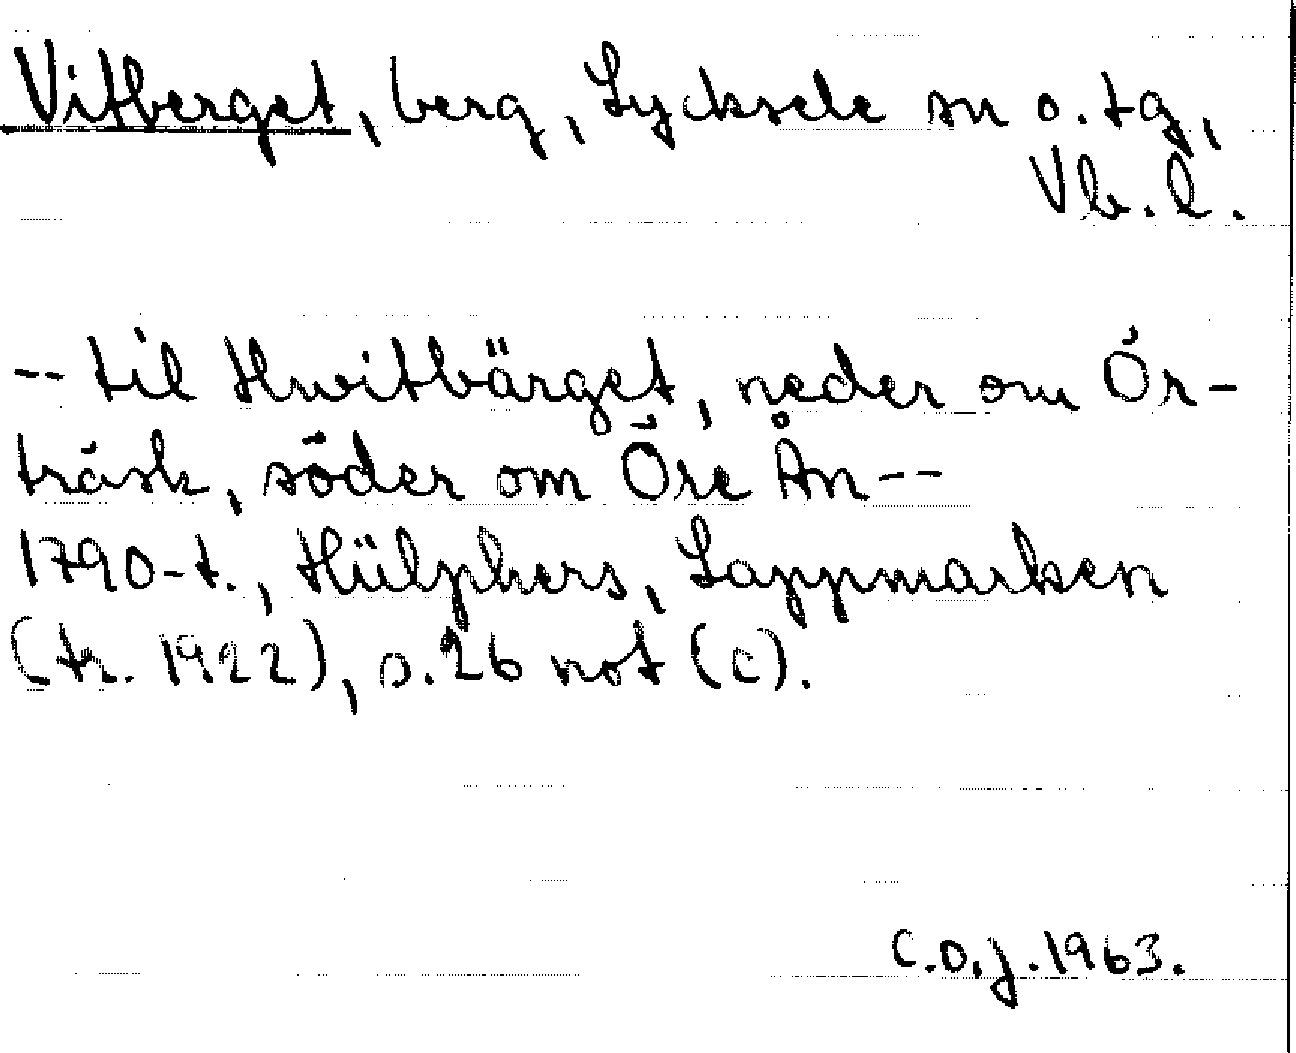 Vitberget, berg, Lycksele sn o. tg,
Vb. l.
-- til Hwitbärget, neder om Ör-
träsk, söder om Öre Ån --
1790-t., Hülphers, Lappmarken
(tr. 1922), s. 26 not (c).
C.O.J. 1963.